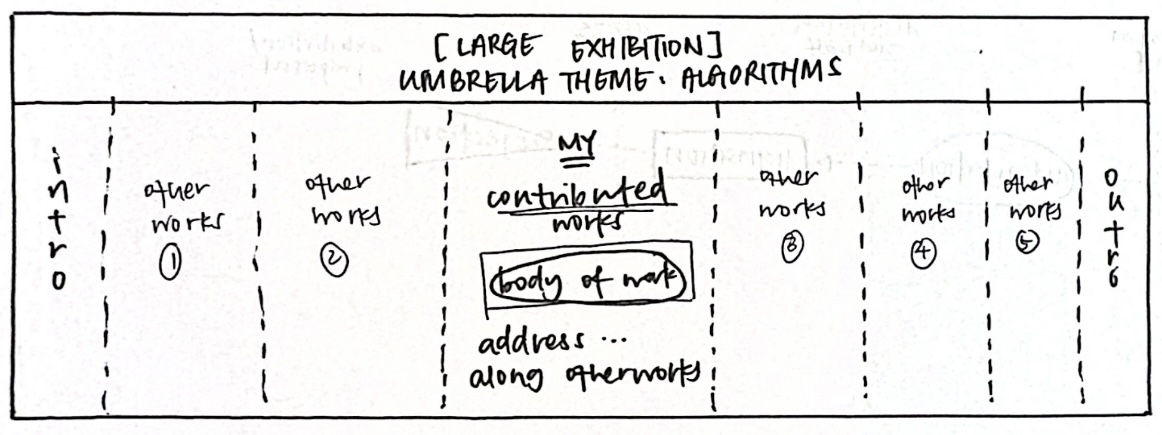 [LARGE EXHIBITION]
UMBRELLA THEME. ALGORITHMS
intro
other
works
①
other
works
②
MY
contributed
works
body of work
address ...
along otherworks
other
works
③
other
works
④
other
works
⑤
outro